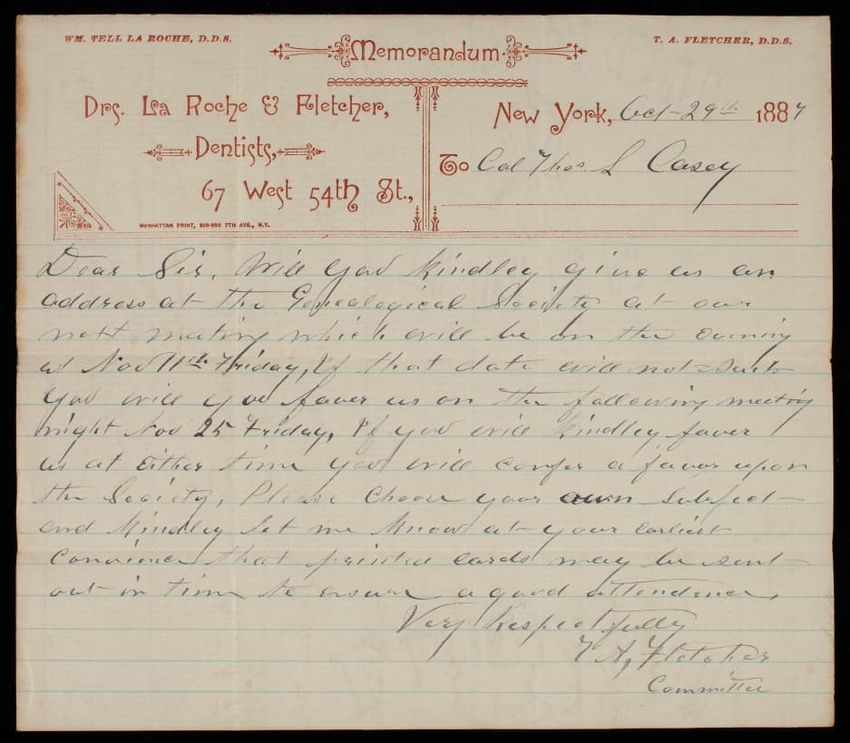 WM. TELL LA ROCHE, D.D.S.
Memorandum
T. A. FLETCHER, D.D.S.
Drs. La Roche & Fletcher,
Dentists,
67 West 54th St.,
MANHATTAN PRINT, 7TH AVE., N.Y.
New York, Oct-29th 1887
To Col Thos L Casey
Dear Sir, Will you kindley give us an
address at the Genealogical Society at our
next meeting which will be on the evening
of Nov 11th Friday, If that date will not suit
you will you favor us on the following meeting
night Nov 25 Friday, If you will kindley favor
us at Either time you will confer a favor upon
the Society, Please choose your own subject
and kindley let me know at your earliest
that printed cards may be sent
out in time to ensure a good attendance,
Very Respectfully
T A, Fletcher
Committee